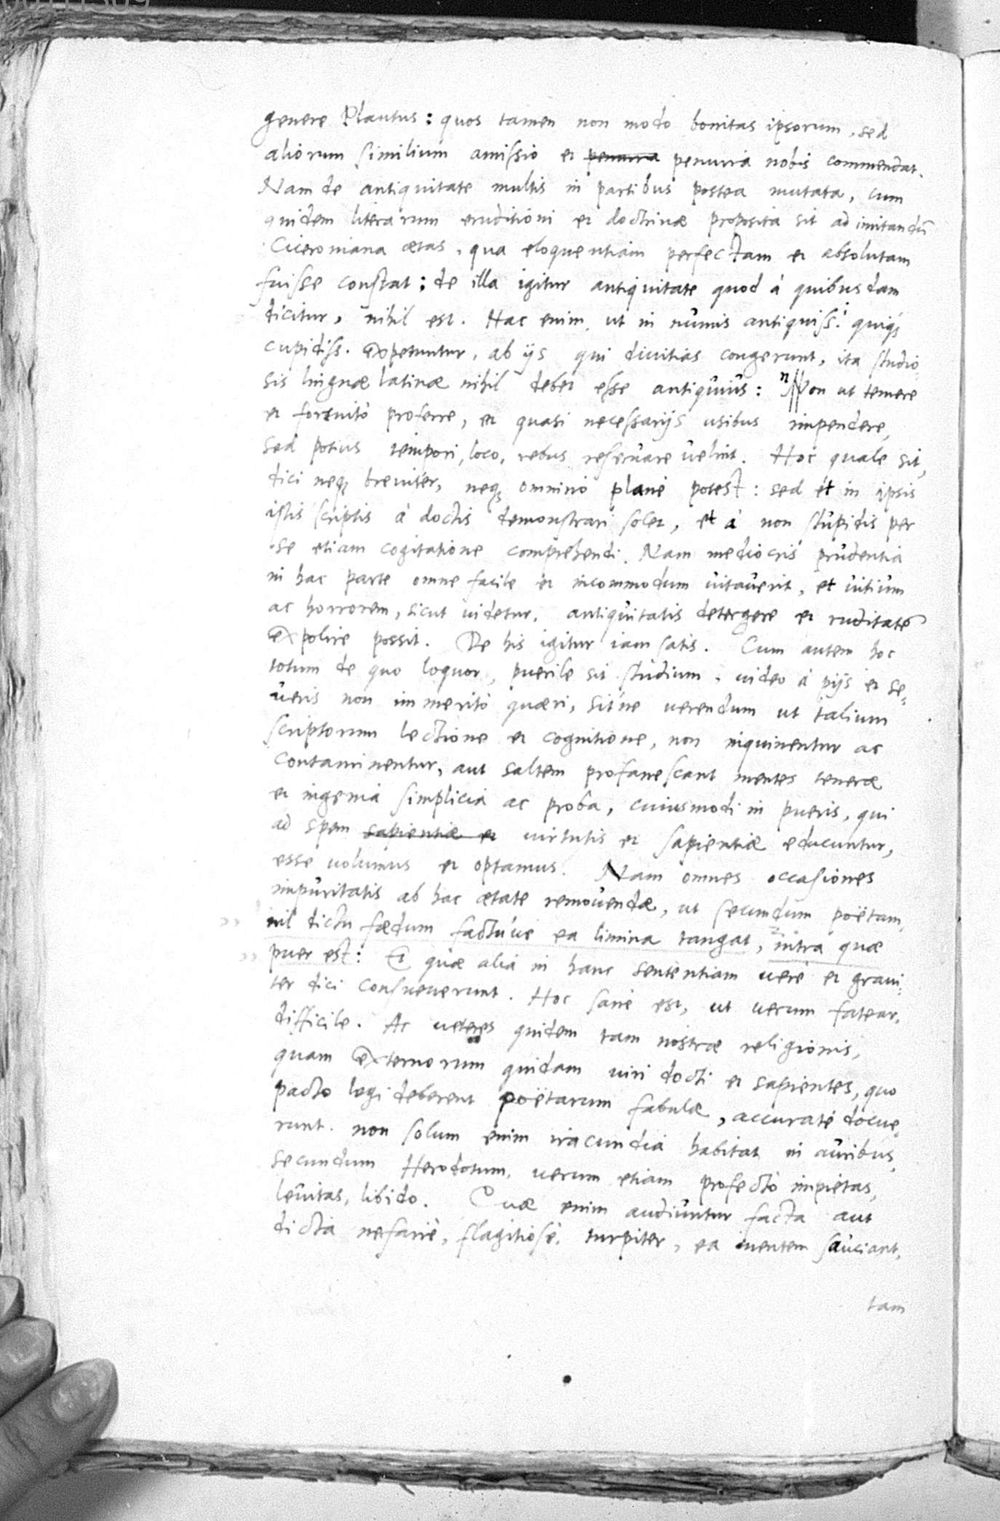 genere Plautus: quos tamen non modo bonitas ipsorum, sed
aliorum similium amissio et penuria penuria nobis commendat.
Nam de antiquitate multis in partibus postea mutata, cum
quidem literarum eruditioni et doctrinæ proposita sit ad imitandũ
Ciceroniana ætas, qua eloquentiam perfectam et absolutam
fuisse constat: de illa igitur antiquitate quod à quibusdam
dicitur, nihil est. Hac enim, ut in numis antiquiss. quiq;
cupidiss. expetuntur, ab ijs qui divitias congerunt, ita studio
sis linguæ latinæ nihil debet esse antiquius: Non ut temere
et fortuitò proferre, et quasi necessarijs usibus impendere,
sed potius tempori, loco, rebus reservare velint. Hoc quale sit,
dici neq; breviter, neq; omnino planè potest: sed et in ipsis
istis scriptis à doctis demonstrari solet, et à non stupidis per
se etiam cogitatione comprehendi. Nam mediocris prudentia
in hac parte omne facile et incommodum vitaverit, et vitium
ac horrorem, sicut videtur, antiquitatis detergere et ruditatẽ
expolire possit. De his igitur iam satis. Cum autem hoc
totum de quo loquor, puerile sit studium, video à pijs et se-
veris non immeritò quæri, sitne verendum ut talium
scriptorum lectione et cognitione, non inquinentur ac
contaminentur, aut saltem profanescant mentes teneræ
et ingenia simplicia ac proba, cuiusmodi in pueris, qui
ad spem sapientiæ et virtutis et sapientiæ educuntur,
esse volumus et optamus. Nam omnes occasiones
impuritatis ab hac ætate removendæ, ut secundum poëtam,
,, nil dictu fædum factúve ea limina tangat, intra quæ
,, puer est: Et quæ alia in hanc sententiam verè et gravi-
ter dici consueverunt. Hoc sanè est, ut verum fatear,
difficile. Ac veteres quidem tam nostræ religionis,
quam externorum quidam viri docti et sapientes, quo
pacto legi deberent poëtarum fabulæ, accuratè docue
runt. non solum enim iracundia habitat in auribus,
secundum Herodotum, verum etiam profectò impietas,
levitas, libido. Quæ enim audiuntur facta aut
dicta nefariè, flagitiosè, turpiter, ea mentem sauciant,
tam